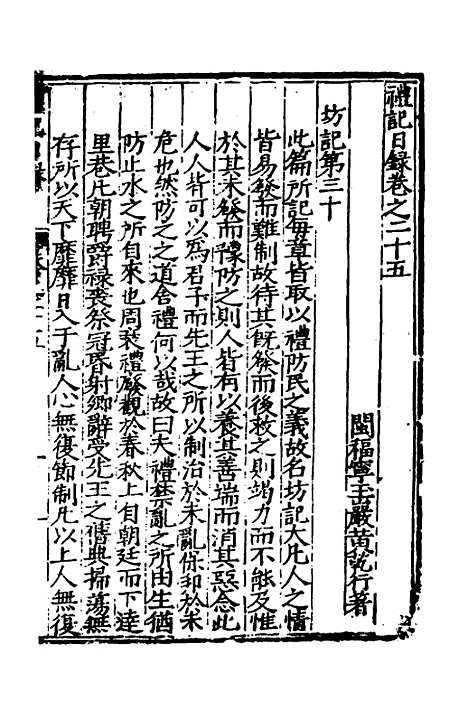 禮記日録卷之二十五
閩福寧玉巖黄乾行著
坊記第三十
此篇所記每章皆取以禮防民之義故名坊記大凡人之情
皆易發而難制故待其既發而後救之則竭力而不能及惟
於其未發而豫防之則人皆有以養其善端而消其惡念此
人人皆可以爲君子而先王之所以制治於未亂保邦於未
危也然防之之道舍禮何以哉故曰夫禮禁亂之所由生猶
防止水之所自來也周衰禮廢觀於春秋上自朝廷而下達
里巷凡朝聘爵禄喪祭冠昏射鄉辭受先王之舊典掃蕩無
存所以天下靡靡日入于亂人心無復節制凡以上人無復